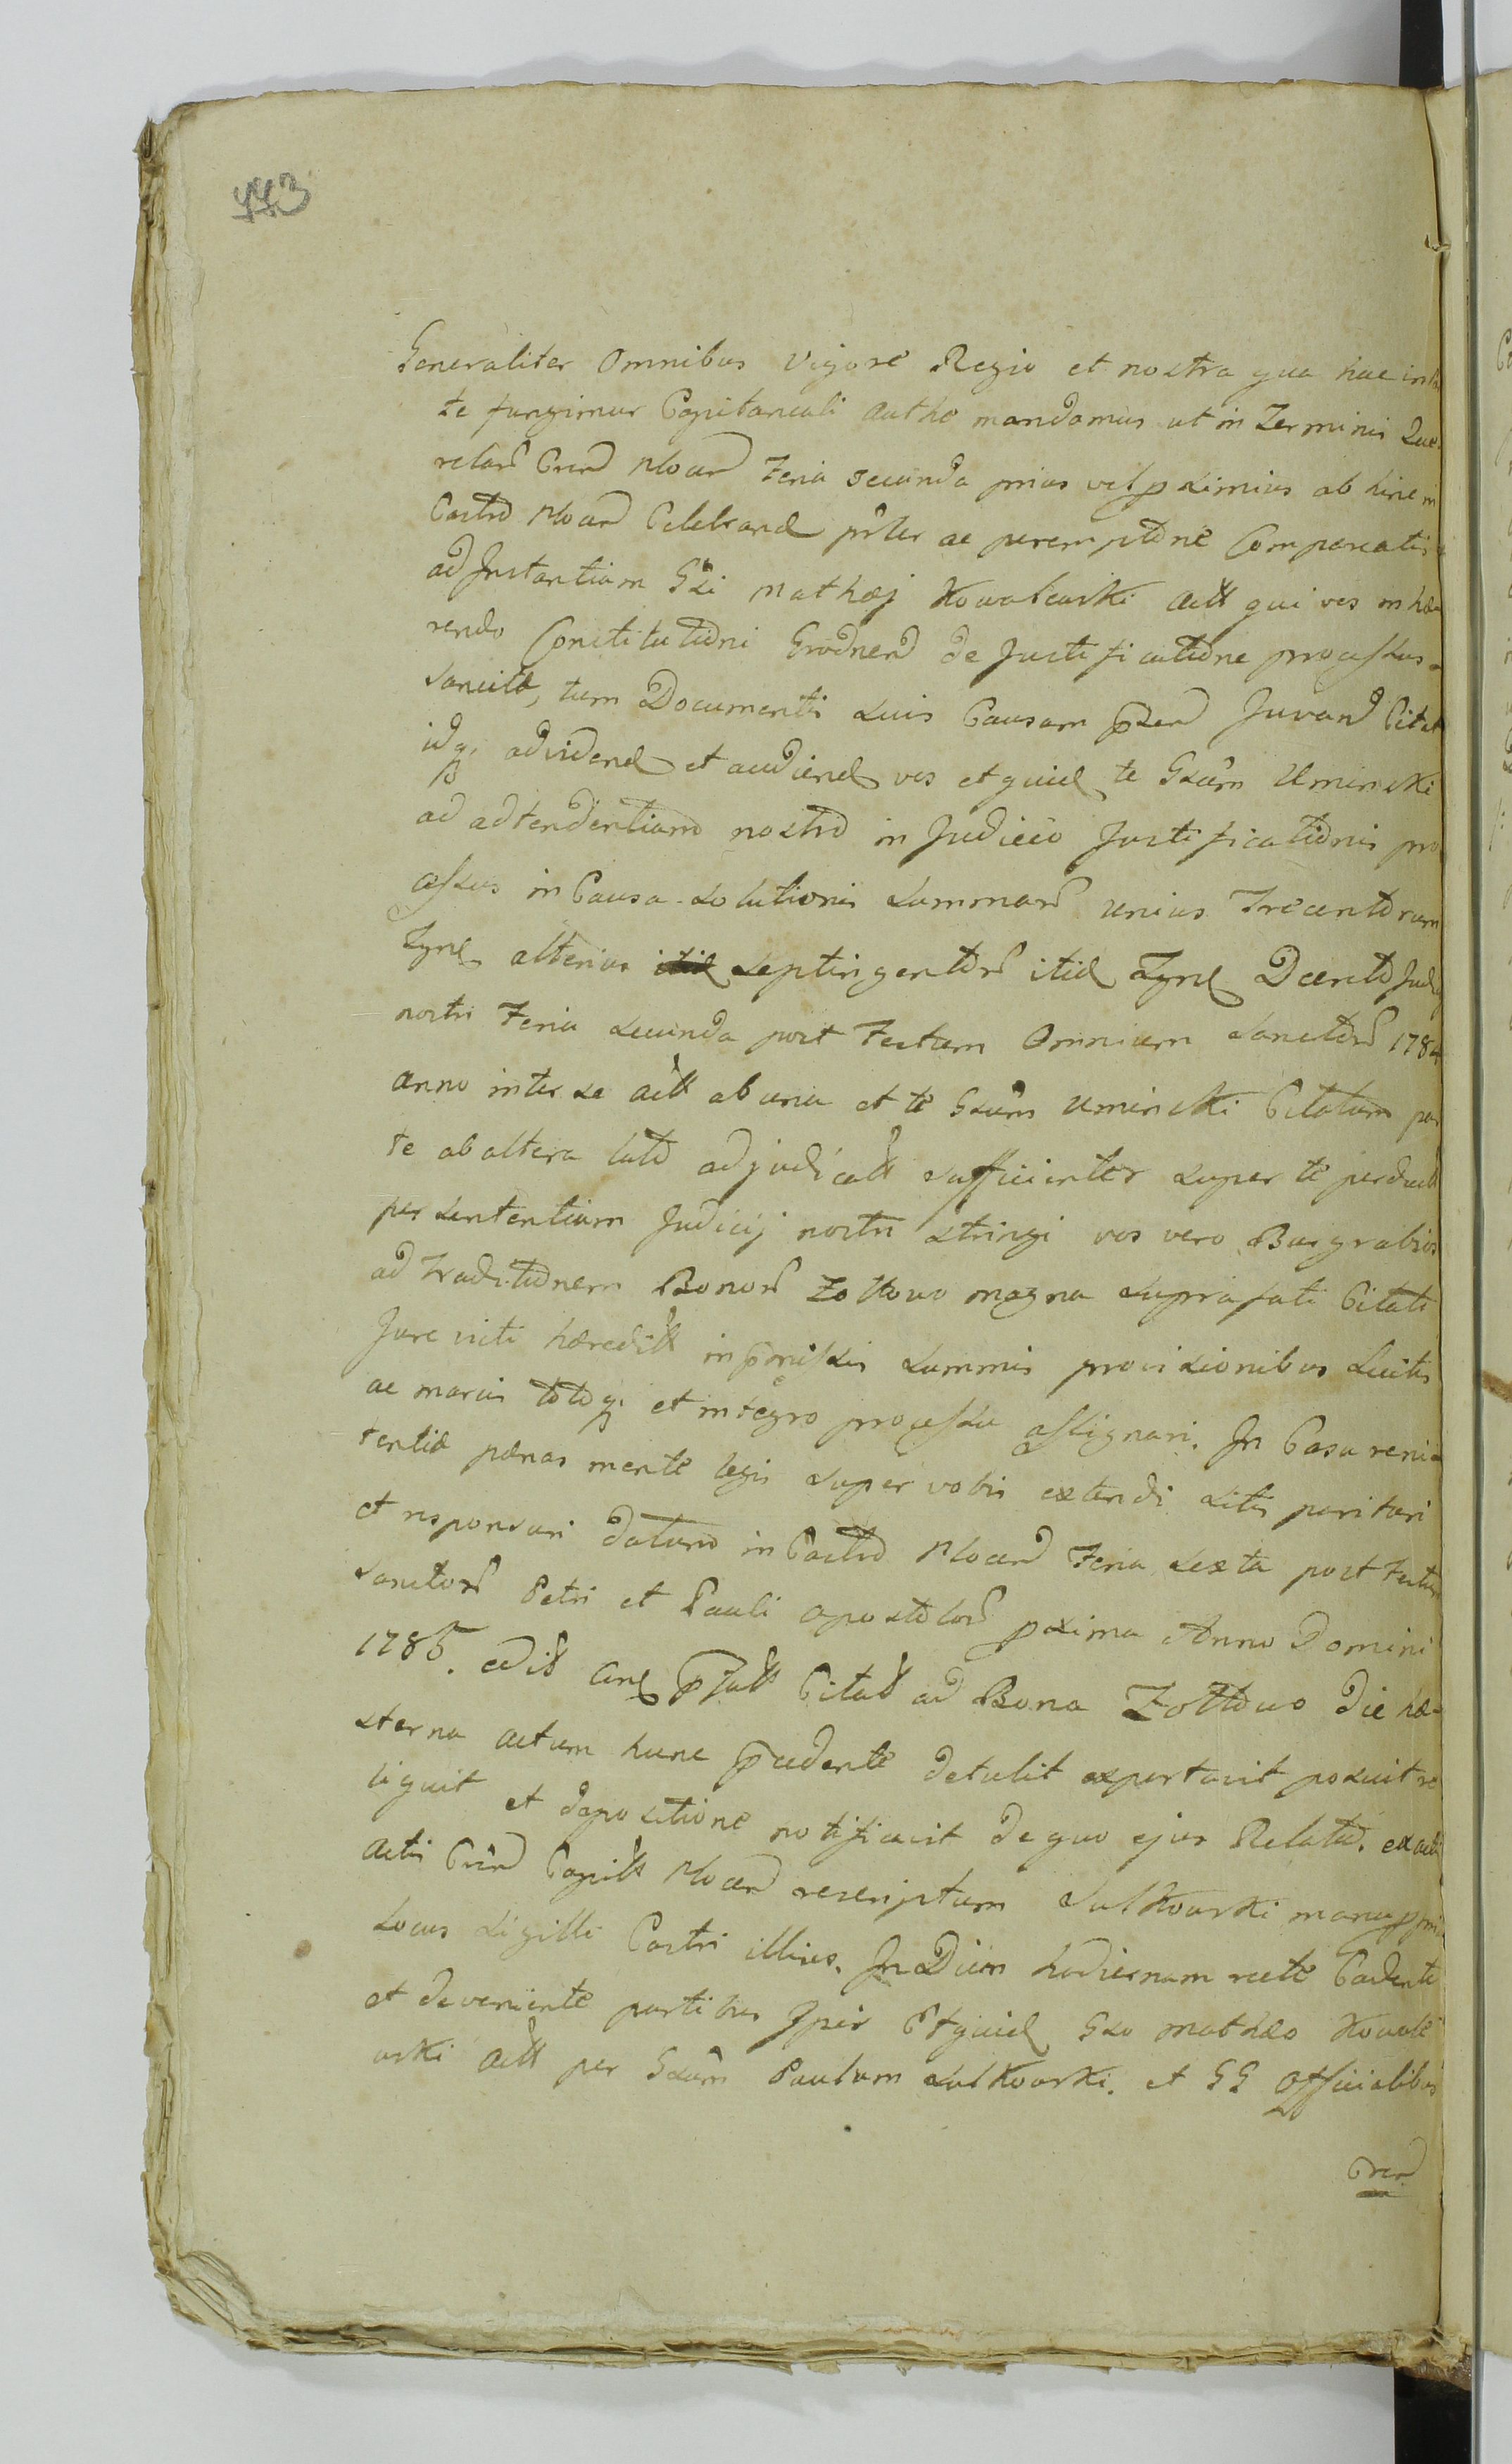 443
Generaliter Omnibus Vigore Regio et nostra qua hac in
te fungimur Capitaneali Autho mandamus ut in Terminis Que
relar Cren Plocen Feria secunda prius vel pximius ab hinc in
Castro Plocen Celebrand prter ac peremptorie Compareatis
ad Instantiam Gsi Mathæj Kowalewski Act qui vos inhæ
rendo Constitutioni Grodnen de Justificatione processus
sancitæ, tum Documentis suis Causam pten Juvand Citat
idq; ad vidend et audiend vos et quid te Gsum Uminski
ad adtendentiam nostro in Judicio Justificationis pro
cessus in Causa solutionis summar unius Trecentorum
Tynf alterius septingentor itid Tynf Decreto Judij
nostri Feria secunda post Festum Omnium Sanctor 1784
anno inter se Act ab una et te Gsum Uminski Citatum par
te ab altera lato adjudicatt sufficienter super te perduct
per sententiam Judicij nostri stringi vos vero Burgrabios
ad traditionem Bonor Zottowo magna suprafati Citati
Jure victi hæreditt in pmissis summis provisionibus Luitis
ac marcis totoq; et integro processu assignari. In Casu reni
tentiæ pænas mente legis super vobis extendi sitis parituri
et responsuri datum in Castro Plocen Feria sexta post Festum
Sanctor Petri et Pauli Apostolor pxima Anno Domini
1785. pfatt Citatt ad Bona Zottowo die he
sterna actum hunc pcedente detulit exportavit posuit re
liquit et depositione notificavit de quo ejus Relatio. ex
Actis Cren Capitt Plocen rescriptum Sulkowski manu ppria
Locus Sigilli Castri illius. In Diem hodiernam recte Cadente
et deveniente partibus Ipsis Etquid Gso Mathæo Kowale
wski Act per Gsum Paulum Sulkowski. et GG Officialibus
Cren